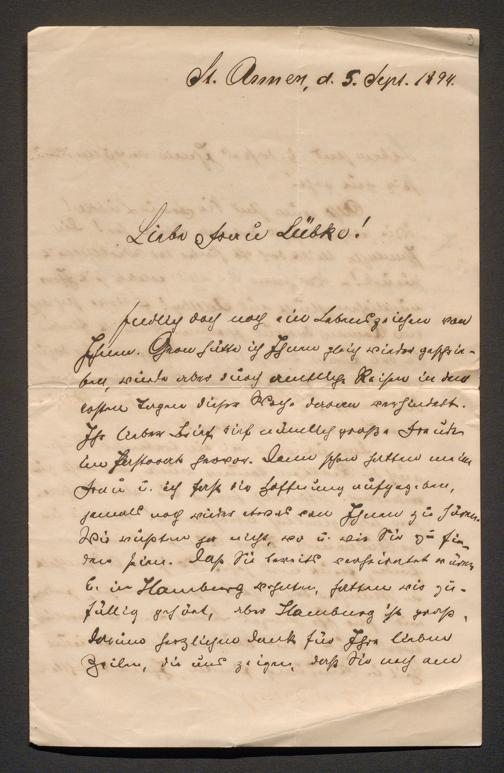 St. Annen, d. 5. Sept. 1894.
Liebe Frau Lübke!
Endlich doch noch ein Lebenszeichen von
Ihnen. Gern hätte ich Ihnen gleich wieder geschrie-
ben, wurde aber durch amtliche Reisen in den
ersten Tagen dieser Woche daran verhindert.
Ihr lieber Brief rief nämlich große Freude
im Pastorat hervor. Denn schon hatten meine
Frau u. ich fast die Hoffnung aufgegeben,
jemals noch wieder etwas von Ihnen zu hören.
Wir wußten ja nicht, wo u. wie Sie zu fin-
den seien. Daß Sie bereits verheiratet wären
u. in Hamburg wohnten, hatten wir zu-
fällig gehört, aber Hamburg ist groß.
Darum herzlichen Dank für Ihre lieben
Zeilen, die uns zeigen, daß Sie noch am